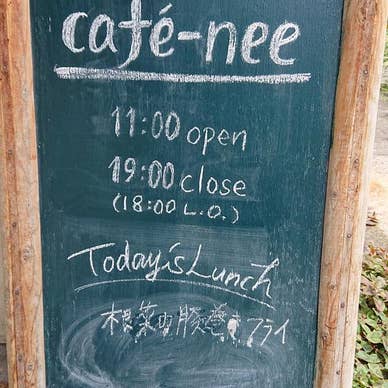 café-nee
11:00 open
19:00 close
(18:00 L.O.)
Today's Lunch
根菜の豚巻きフライ